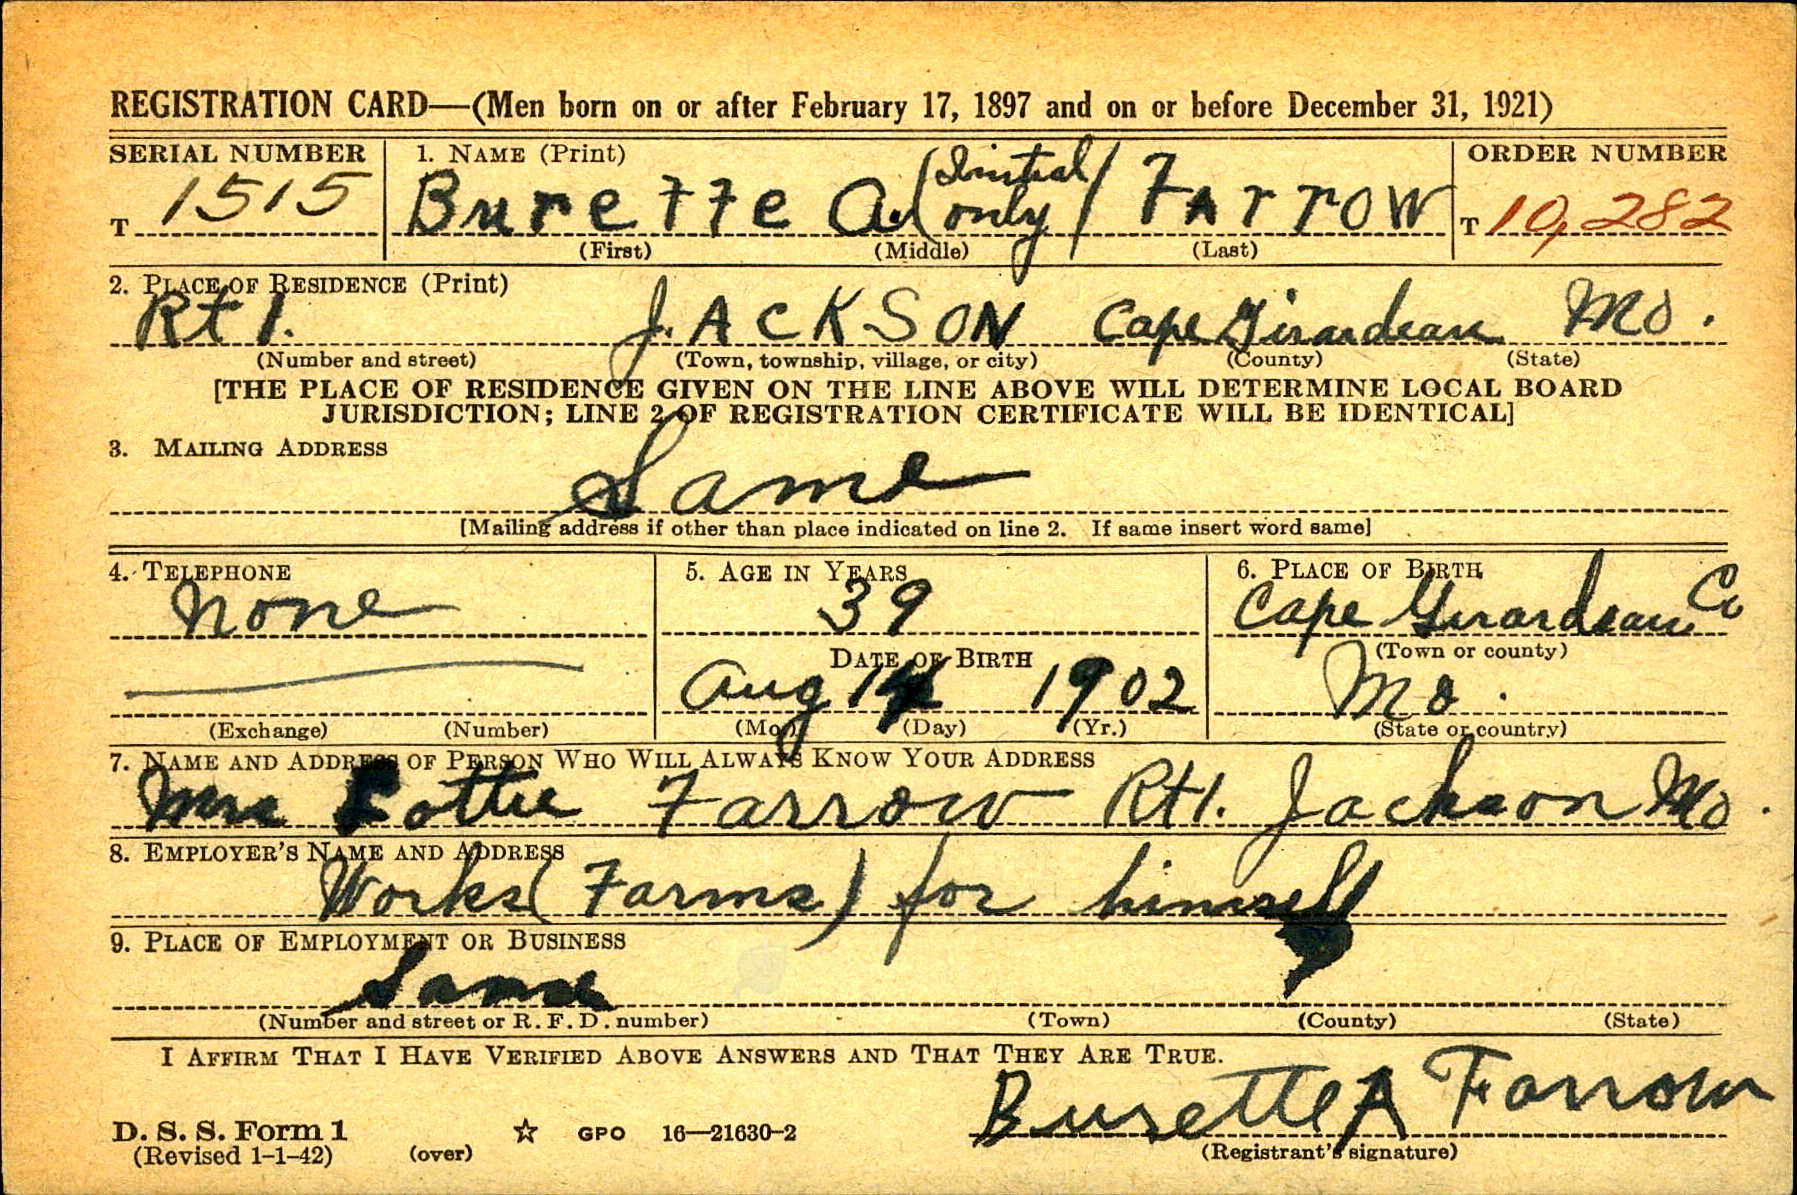 REGISTRATION CARD—(Men born on or after February 17, 1897 and on or before December 31, 1921)
SERIAL NUMBER 1. NAME (Print) ORDER NUMBER
T 1515 Burette A. (Initial only) Farrow T 10,282
(First) (Middle) (Last)
2. PLACE OF RESIDENCE (Print)
Rt 1. JACKSON Cape Girardeau Mo.
(Number and street) (Town, township, village, or city) (County) (State)
[THE PLACE OF RESIDENCE GIVEN ON THE LINE ABOVE WILL DETERMINE LOCAL BOARD
JURISDICTION; LINE 2 OF REGISTRATION CERTIFICATE WILL BE IDENTICAL]
3. MAILING ADDRESS
Same
[Mailing address if other than place indicated on line 2. If same insert word same]
4. TELEPHONE 5. AGE IN YEARS 6. PLACE OF BIRTH
None 39 Cape Girardeau Co
DATE OF BIRTH (Town or county)
Aug 14 1902 Mo.
(Exchange) (Number) (Mo.) (Day) (Yr.) (State or country)
7. NAME AND ADDRESS OF PERSON WHO WILL ALWAYS KNOW YOUR ADDRESS
Mrs Lottie Farrow Rt 1. Jackson Mo.
8. EMPLOYER'S NAME AND ADDRESS
Works (Farms) for himself
9. PLACE OF EMPLOYMENT OR BUSINESS
Same
(Number and street or R. F. D. number) (Town) (County) (State)
I AFFIRM THAT I HAVE VERIFIED ABOVE ANSWERS AND THAT THEY ARE TRUE.
Burette A Farrow
D. S. S. Form 1 ☆ GPO 16—21630-2
(Revised 1-1-42) (over) (Registrant's signature)